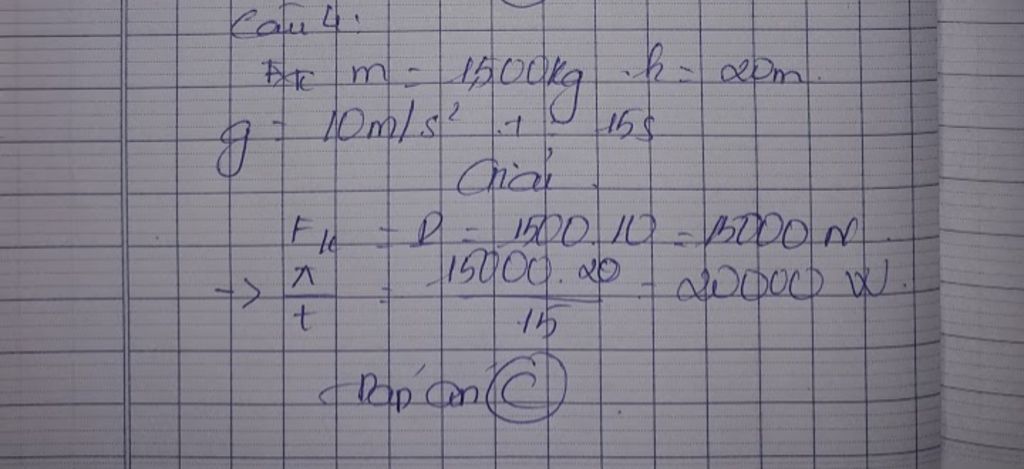 Câu 4:
m = 1500kg . h = 20m.
g = 10m/s² . t = 15s
Giải
Fk = P = 1500.10 = 15000 N.
-> A/t = 15000.20/15 = 20000 W.
Đáp án C